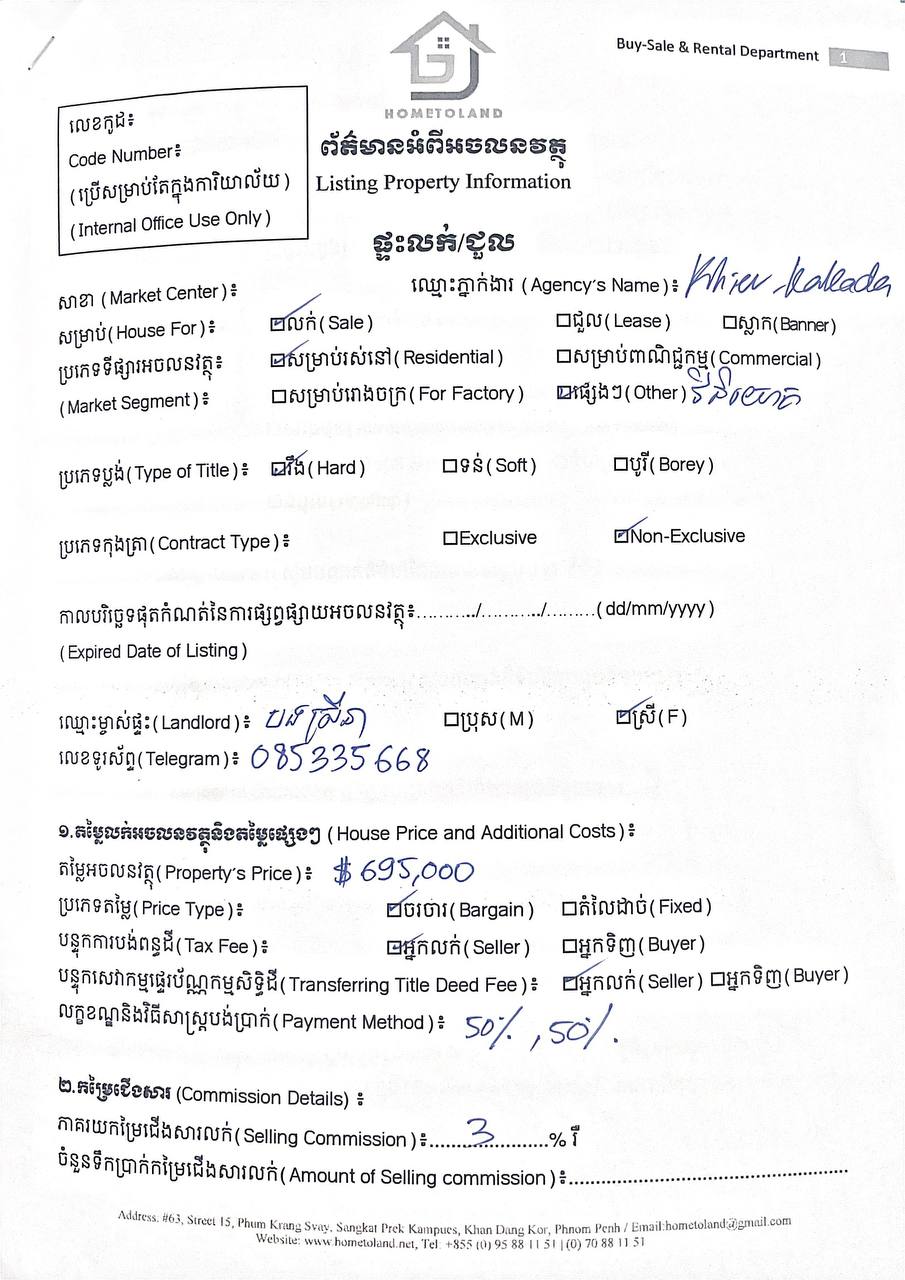 Buy-Sale & Rental Department 1
HOMETOLAND
លេខកូដ៖
Code Number៖
(ប្រើសម្រាប់តែក្នុងការិយាល័យ)
(Internal Office Use Only)
ព័ត៌មានអំពីអចលនវត្ថុ
Listing Property Information
ផ្ទះលក់/ជួល
សាខា (Market Center)៖ ឈ្មោះភ្នាក់ងារ (Agency's Name)៖ Khiev
សម្រាប់(House For)៖ ☑លក់(Sale) ☐ជួល(Lease) ☐ស្លាក(Banner)
ប្រភេទទីផ្សារអចលនវត្ថុ៖ ☑សម្រាប់រស់នៅ(Residential) ☐សម្រាប់ពាណិជ្ជកម្ម(Commercial)
(Market Segment)៖ ☐សម្រាប់រោងចក្រ(For Factory) ☑ផ្សេងៗ(Other)
ប្រភេទប្លង់(Type of Title)៖ ☑រឹង(Hard) ☐ទន់(Soft) ☐បុរី(Borey)
ប្រភេទកុងត្រា(Contract Type)៖ ☐Exclusive ☑Non-Exclusive
កាលបរិច្ឆេទផុតកំណត់នៃការផ្សព្វផ្សាយអចលនវត្ថុ៖........../........../.........(dd/mm/yyyy)
(Expired Date of Listing)
ឈ្មោះម្ចាស់ផ្ទះ(Landlord)៖ បង ស្រីនា ☐ប្រុស(M) ☑ស្រី(F)
លេខទូរស័ព្ទ(Telegram)៖ 085335668
១.តម្លៃលក់អចលនវត្ថុនិងតម្លៃផ្សេងៗ (House Price and Additional Costs)៖
តម្លៃអចលនវត្ថុ(Property's Price)៖ $ 695,000
ប្រភេទតម្លៃ(Price Type)៖ ☑ចរចារ(Bargain) ☐តំលៃដាច់(Fixed)
បន្ទុកការបង់ពន្ធដី(Tax Fee)៖ ☑អ្នកលក់(Seller) ☐អ្នកទិញ(Buyer)
បន្ទុកសេវាកម្មផ្ទេរប័ណ្ណកម្មសិទ្ធិដី(Transferring Title Deed Fee)៖ ☑អ្នកលក់(Seller) ☐អ្នកទិញ(Buyer)
លក្ខខណ្ឌនិងវិធីសាស្ត្របង់ប្រាក់(Payment Method)៖ 50% , 50%.
២.កម្រៃជើងសារ (Commission Details) ៖
ភាគរយកម្រៃជើងសារលក់(Selling Commission)៖.......3..........% រឺ
ចំនួនទឹកប្រាក់កម្រៃជើងសារលក់(Amount of Selling commission)៖..................................................
Address. #63, Street 15, Phum Krang Svay, Sangkat Prek Kampues, Khan Dang Kor, Phnom Penh / Email:hometoland@gmail.com
Website: www.hometoland.net, Tel: +855 (0) 95 88 11 51 | (0) 70 88 11 51